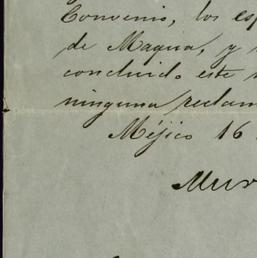 Convenio, los esp
de Magua, y
concluido este
ninguna reclam
Méjico 16
Mur